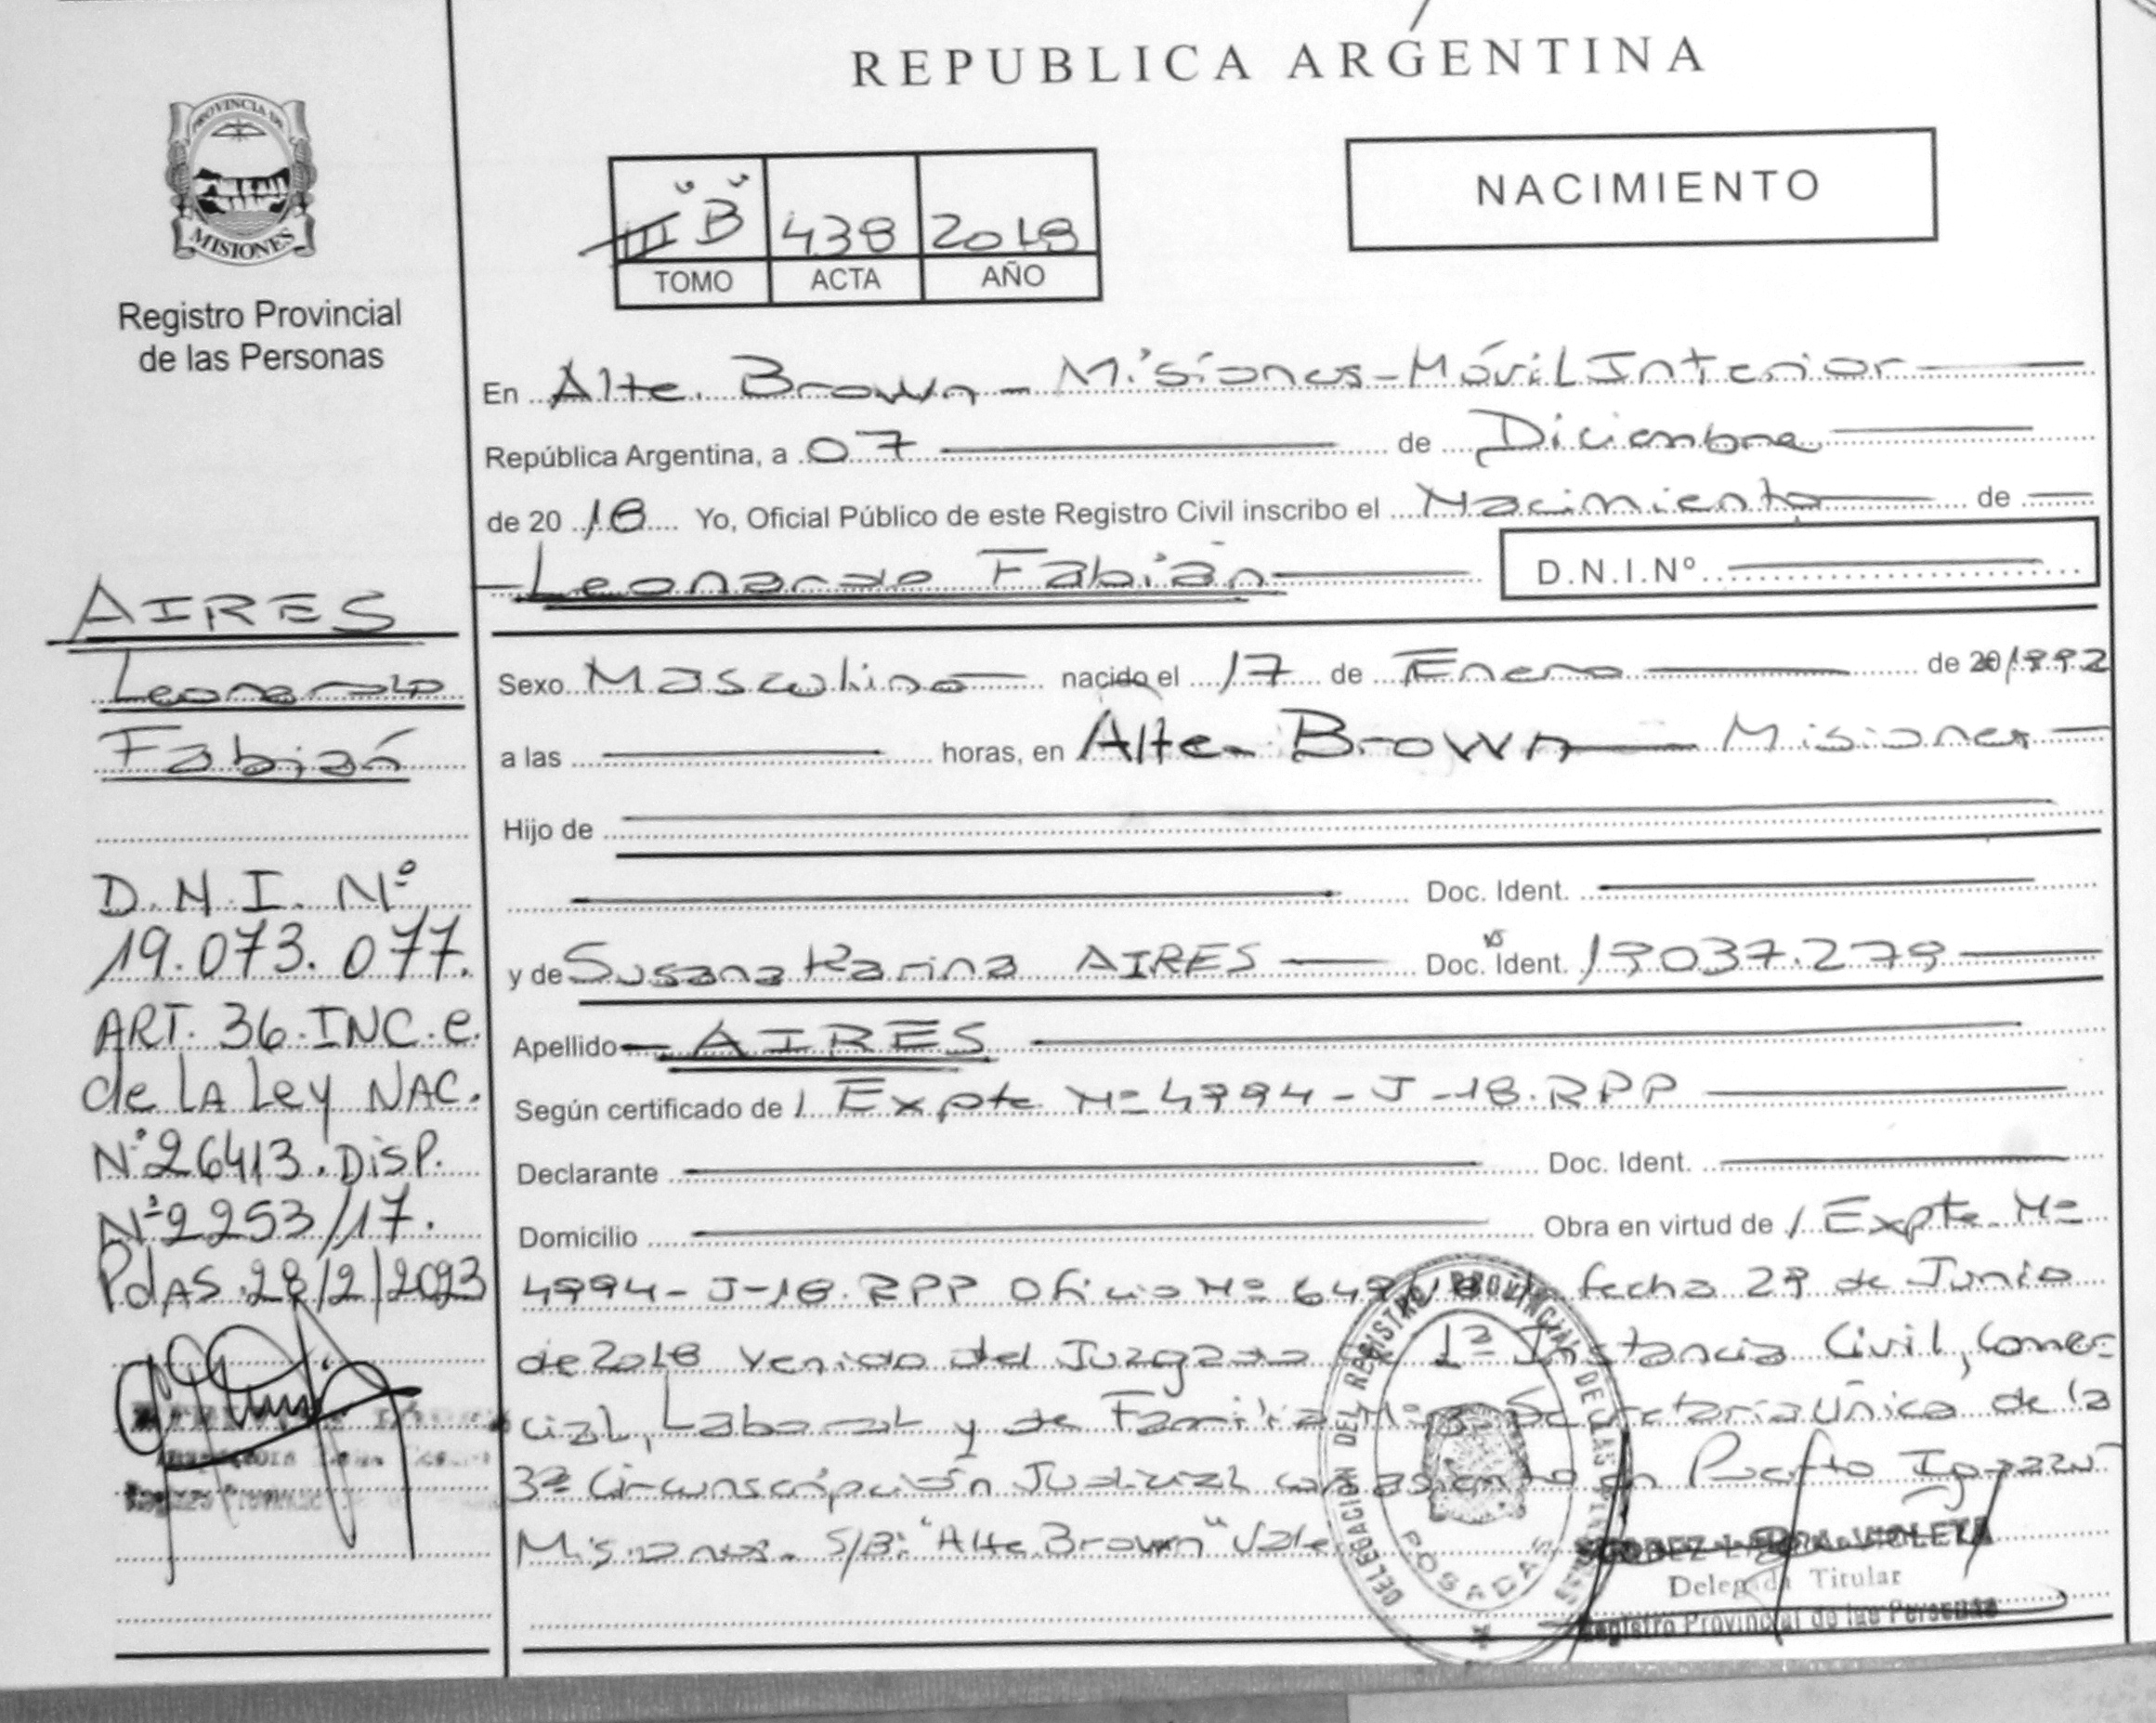 REPUBLICA ARGENTINA
PROVINCIA DE
MISIONES
Registro Provincial
de las Personas
NACIMIENTO
"B" 438 2018
TOMO ACTA AÑO
En Alte. Brown - Misiones - Móvil Interior
República Argentina, a 07 de Diciembre
de 20 18 Yo, Oficial Público de este Registro Civil inscribo el Nacimiento de
Leonardo Fabián D.N.I.Nº
Sexo Masculino nacido el 17 de Enero de 1992
a las horas, en Alte. Brown Misiones
Hijo de
Doc. Ident.
y de Susana Karina AIRES Doc. Ident. 19037.279
Apellido AIRES
Según certificado de / Expte Nº 4994-J-18.RPP
Declarante Doc. Ident.
Domicilio Obra en virtud de / Expte. Nº
4994-J-18.RPP Oficio Nº fecha 29 de Junio
de 2018 venido del Juzgado 1ª Instancia Civil, Comer-
cial, Laboral y de Familia Secretaria Única de la
3ª Circunscripción Judicial con asiento en Puerto Iguazú
Misiones. S/B: "Alte Brown" Vale
AIRES
Leonardo
Fabián
D.N.I. Nº
19.073.077.
ART. 36.INC.c.
de LA Ley NAC.
Nº26413.DISP.
Nº2253/17.
PdAS.28/2/2023
DELEGACION DEL REGISTRO PROVINCIAL DE LAS PERSONAS
POSADAS
VIOLETA
Delegada Titular
Registro Provincial de las Personas